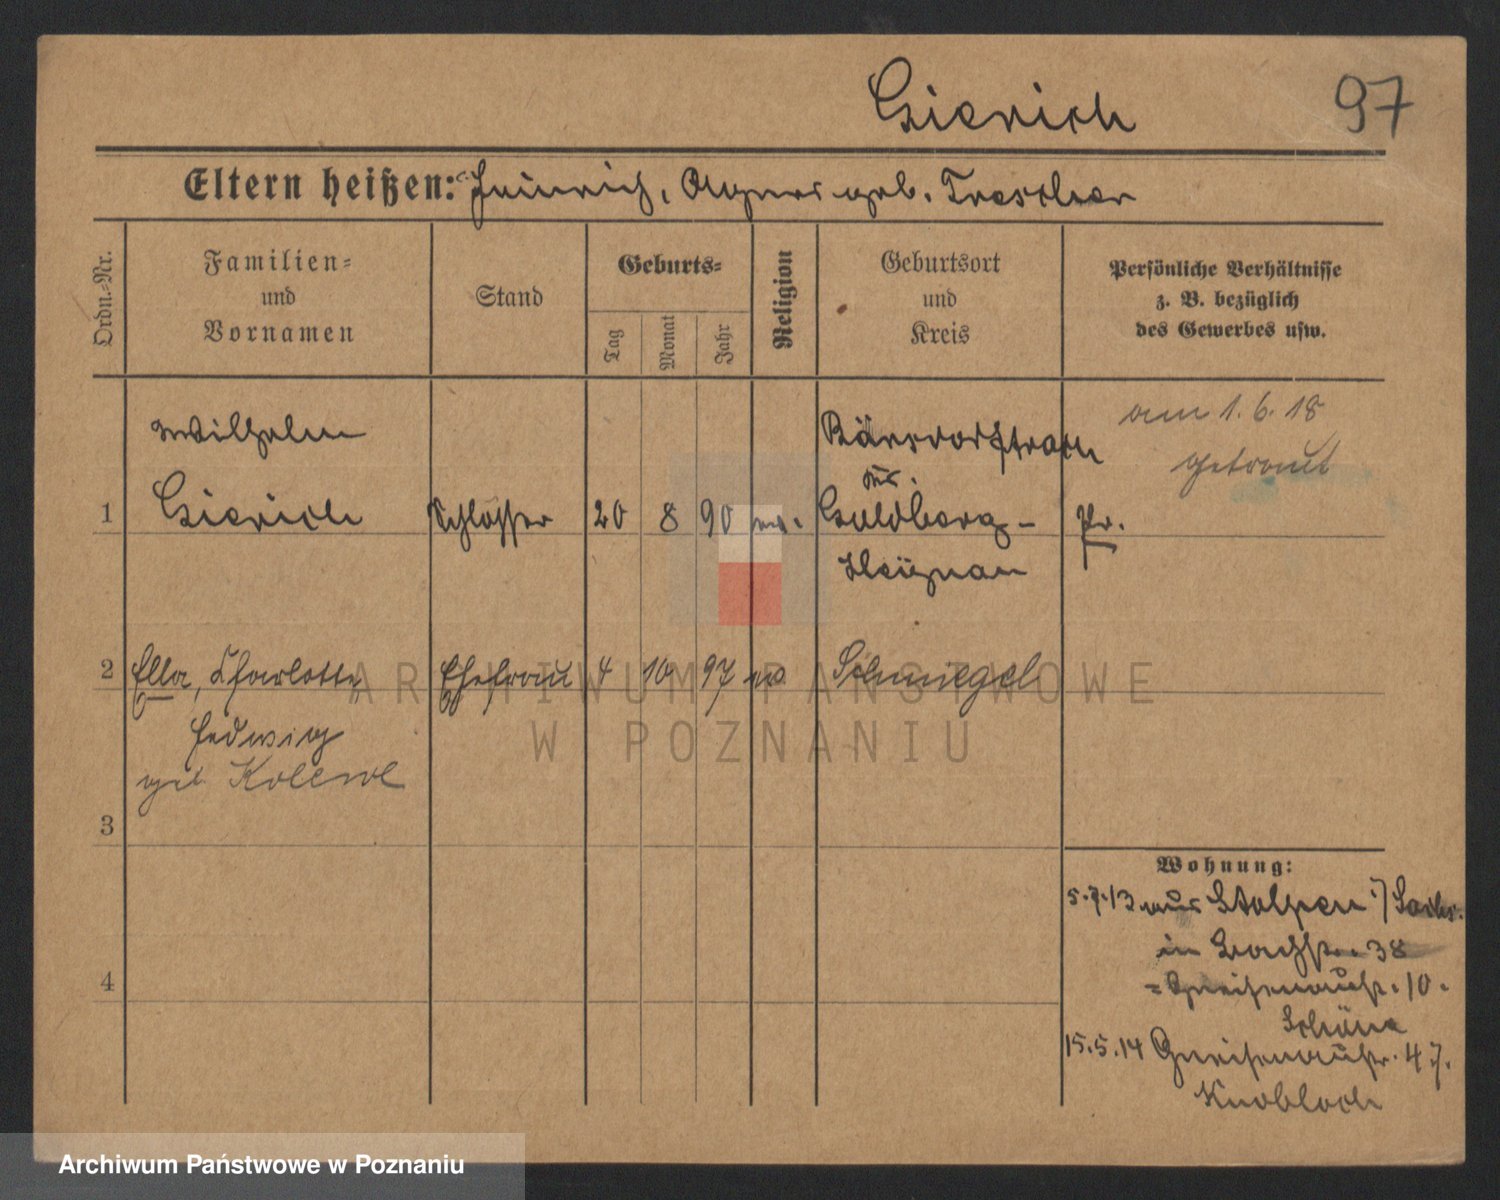 Gierich 97
Eltern heißen: Heinrich, Agnes geb. Trescher
Ordn.=Nr.
Familien=
und
Vornamen
Stand
Geburts=
Tag
Monat
Jahr
Religion
Geburtsort
und
Kreis
Persönliche Verhältnisse
z. B. bezüglich
des Gewerbes usw.
am 1. 6. 18
getraut
Wilhelm
Bärsdorftrach
Kr.
1 Gierich Schlosser 20 8 90 ev. Goldberg- Pr.
Haÿnau
2 Ella, Charlotte, Ehefrau 4 10 97 ev Schmiegel
Hedwig
geb. Kolewe
3
4
Wohnung:
5.7.13 aus Stolpen i/ Sachs.
in Bachstr. 38
= Gneisenaustr. 10.
Schön
15.5.14 Gneisenaustr. 47.
Knobloch
ARCHIWUM PAŃSTWOWE
W POZNANIU
Archiwum Państwowe w Poznaniu